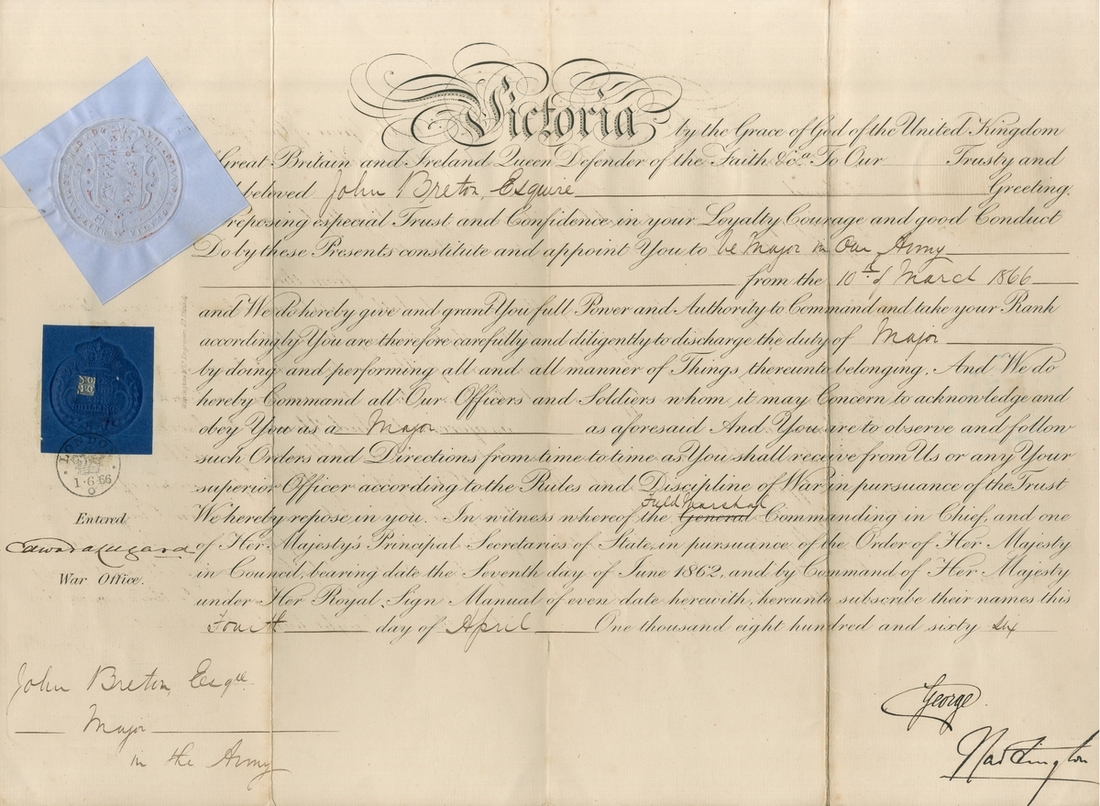 Victoria by the Grace of God of the United Kingdom
Great Britain and Ireland Queen Defender of the Faith &c.a To Our Trusty and
beloved John Breton, Esquire Greeting.
reposing especial Trust and Confidence in your Loyalty Courage and good Conduct
Do by these Presents constitute and appoint You to be Major in Our Army
from the 10th of March 1866
and We do hereby give and grant You full Power and Authority to Command and take your Rank
accordingly You are therefore carefully and diligently to discharge the duty of Major
by doing and performing all and all manner of Things thereunto belonging. And We do
hereby Command all Our Officers and Soldiers whom it may Concern to acknowledge and
obey You as a Major as aforesaid And You are to observe and follow
such Orders and Directions from time to time as You shall receive from Us or any Your
superior Officer according to the Rules and Discipline of War, in pursuance of the Trust
Field Marshal
We hereby repose in you. In witness whereof the General Commanding in Chief, and one
of Her Majesty's Principal Secretaries of State, in pursuance of the Order of Her Majesty
in Council, bearing date the Seventh day of June 1862, and by Command of Her Majesty
under Her Royal Sign Manual of even date herewith, hereunto subscribe their names this
Fourth day of April One thousand eight hundred and sixty six
LONDON
1·6 66
Entered
Edward Lugard
War Office.
John Breton, Esqre
Major
in the Army
George
Hartington